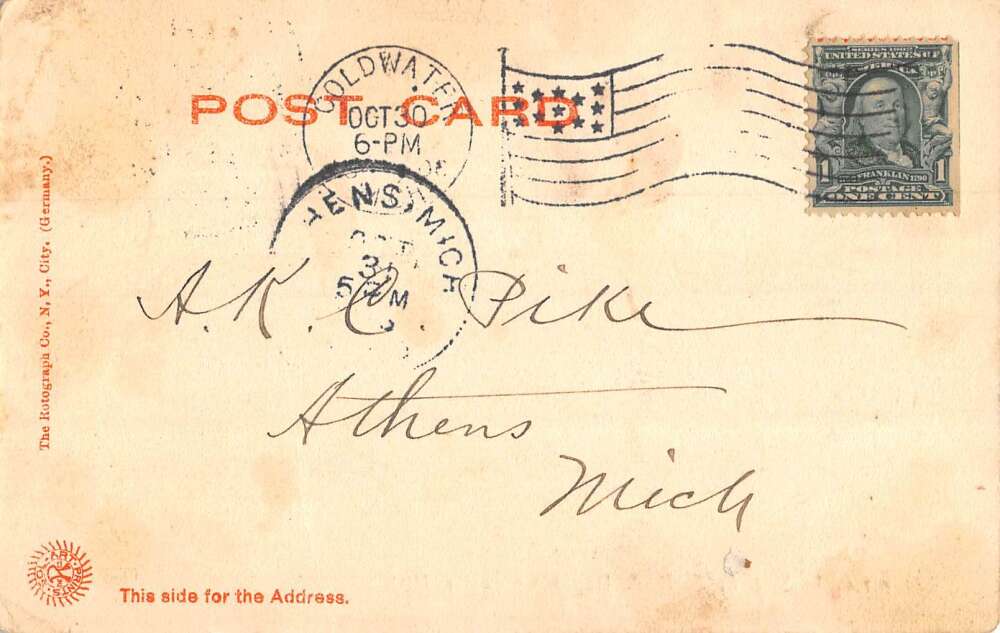 POST CARD
COLDWATER
OCT 30
6-PM
SERIES 1902
UNITED STATES OF
AMERICA
1 1
FRANKLIN 1790
POSTAGE
ONE CENT
ENS, MICH
5 M
A. K. C. Pike
Athens
Mich
The Rotograph Co., N. Y., City. (Germany.)
This side for the Address.